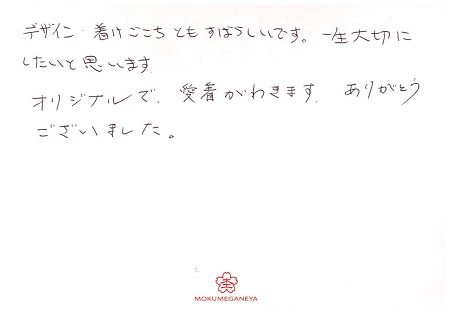 デザイン・着けごこちともすばらしいです。一生大切に
したいと思います
オリジナルで、愛着がわきます. ありがとう
ございました。
MOKUMEGANEYA